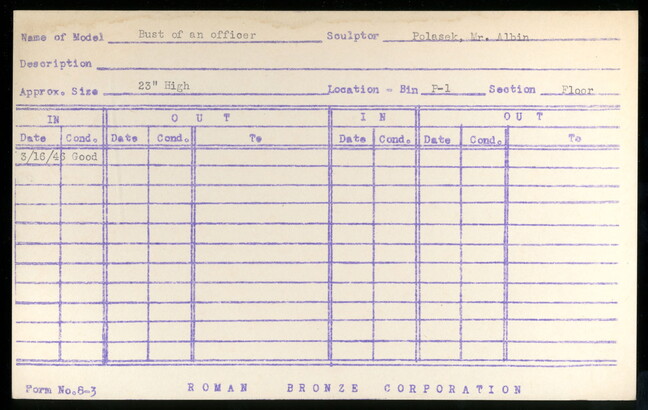 Name of Model Bust of an officer Sculptor Polasek, Mr. Albin
Description
Approx. Size 23" High Location - Bin P-1 Section Floor
IN OUT IN OUT
Date Cond. Date Cond. To Date Cond. Date Cond. To
3/16/46 Good
Form No. 8-3 ROMAN BRONZE CORPORATION